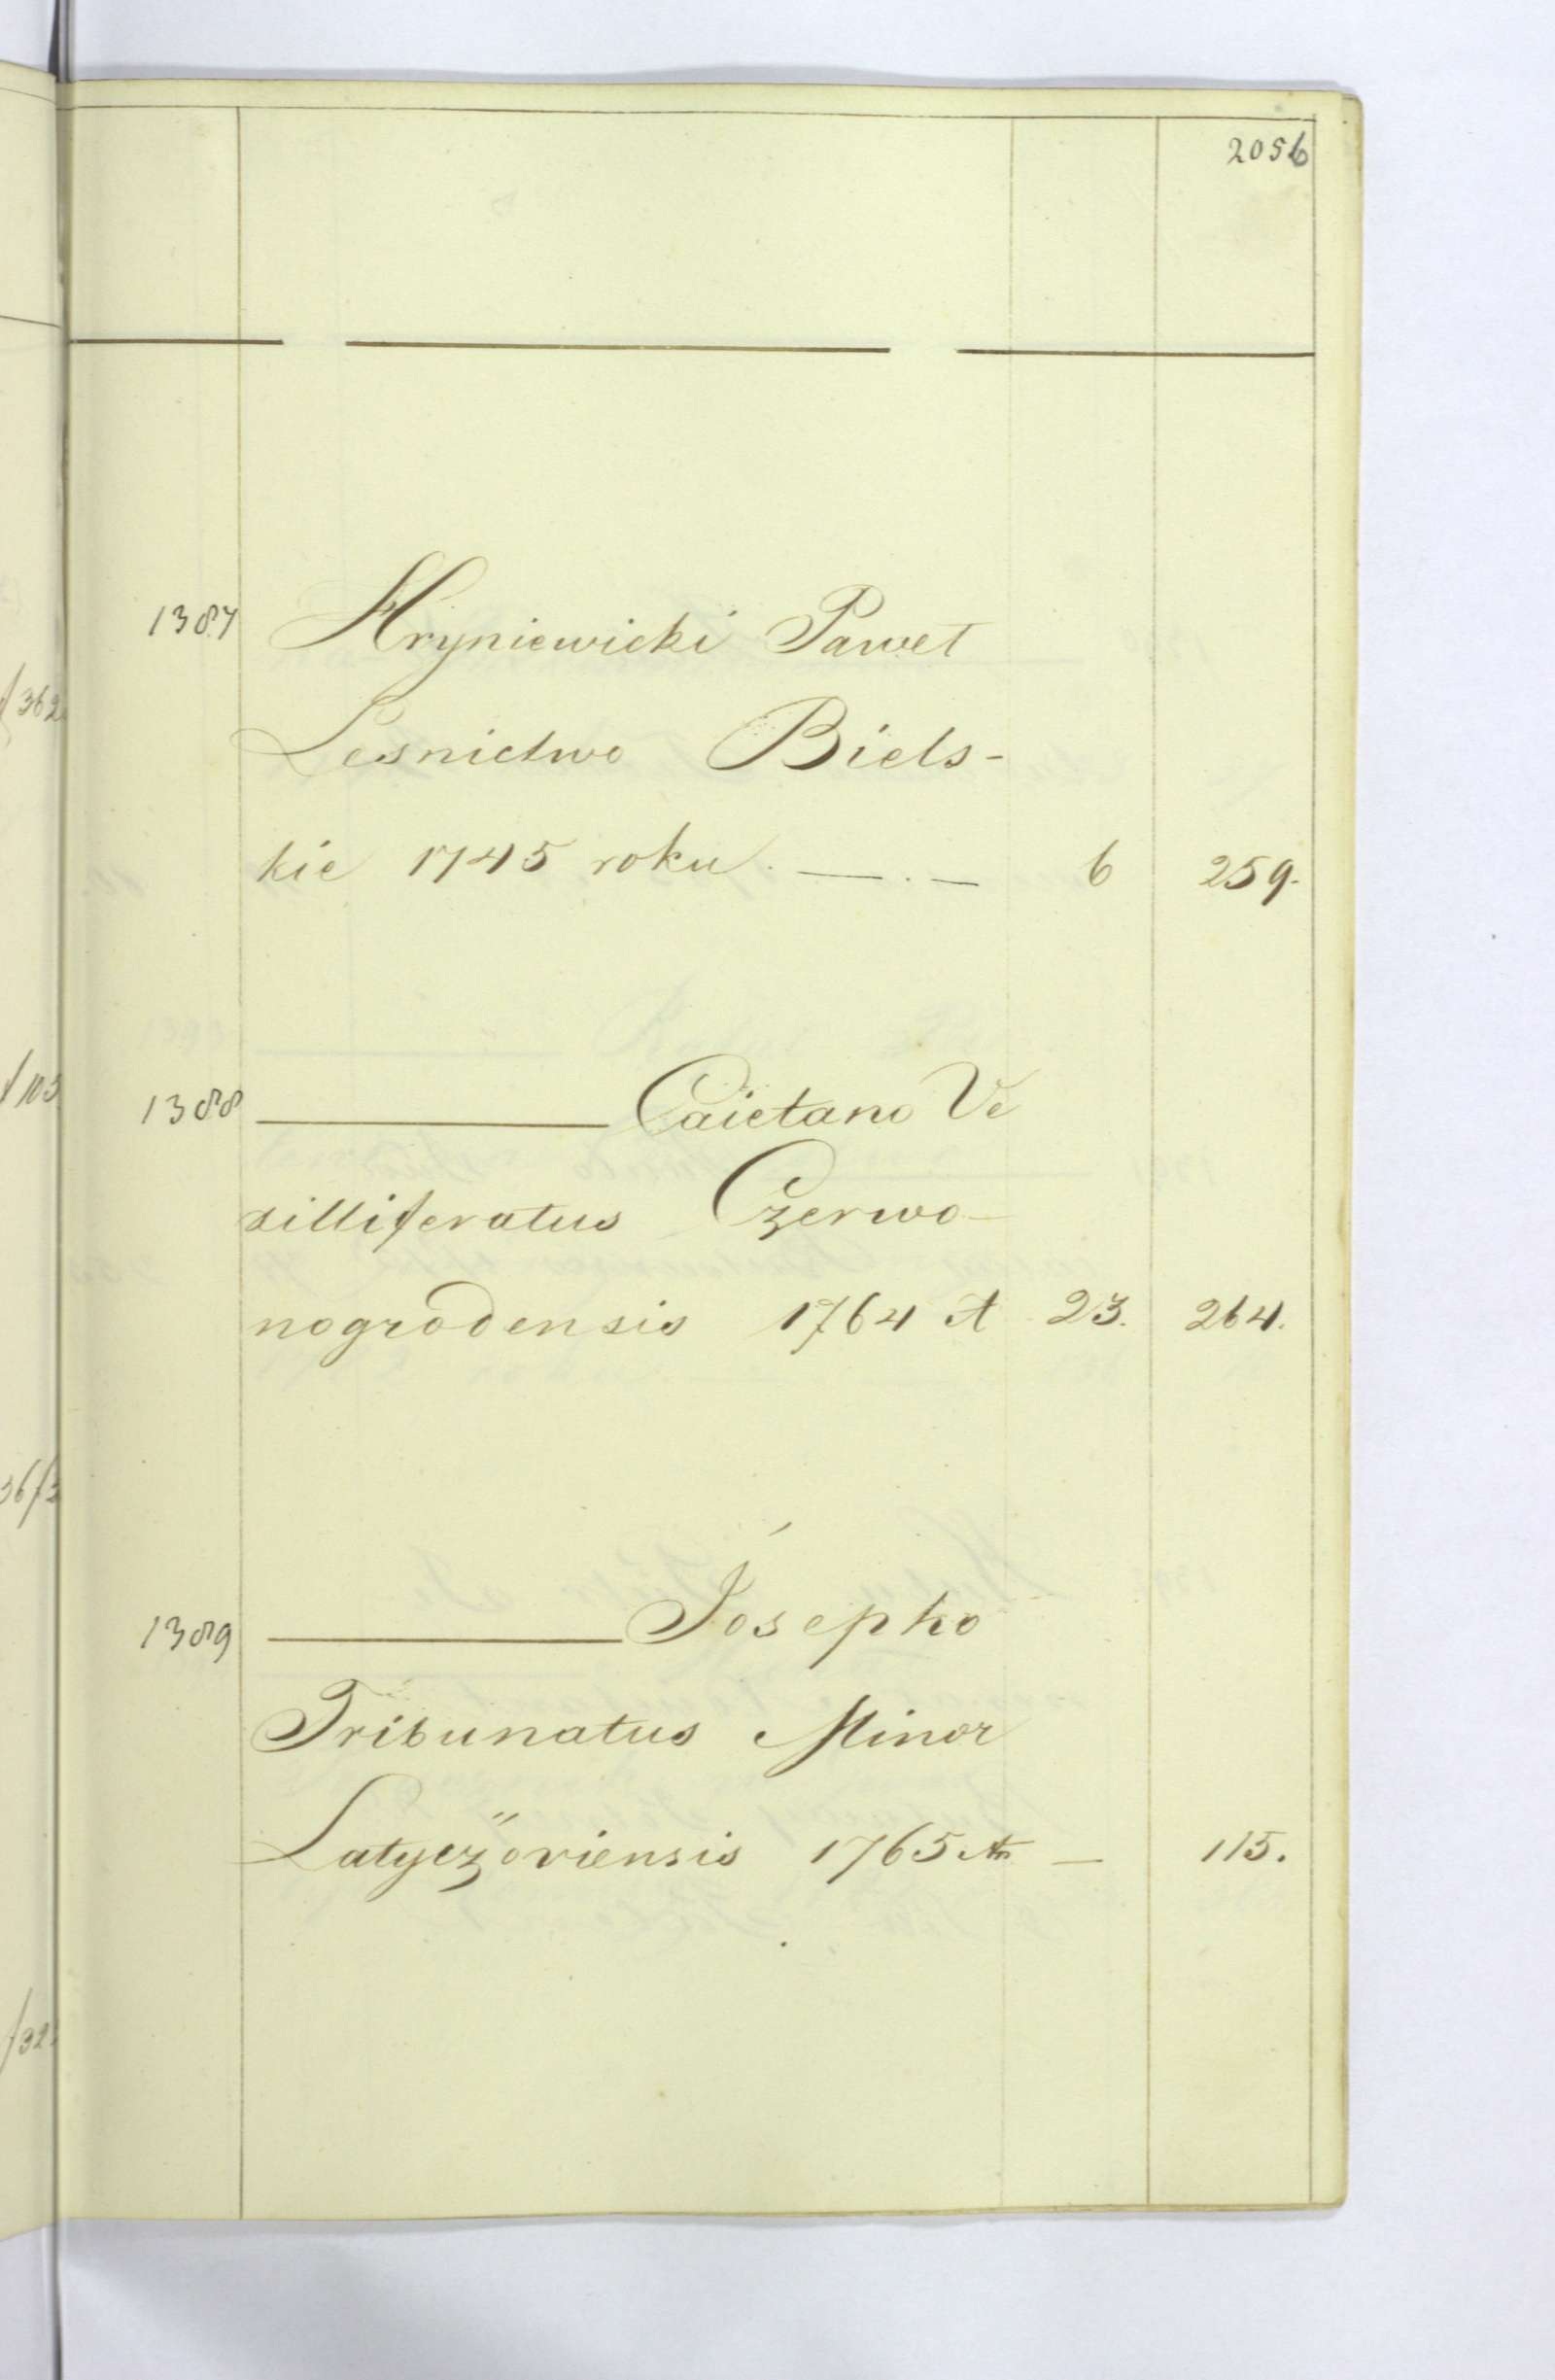 2056
1387 Hryniewicki Paweł
Lesnictwo Biels-
kie 1745 roku. — . — 6 259.
1388 ——— Caietano Ve
xilliferatus Czerwo-
nogrodensis 1764 A 23. 264.
1389 ——— Josepho
Tribunatus Minor
Latyczoviensis 1765 An — 115.